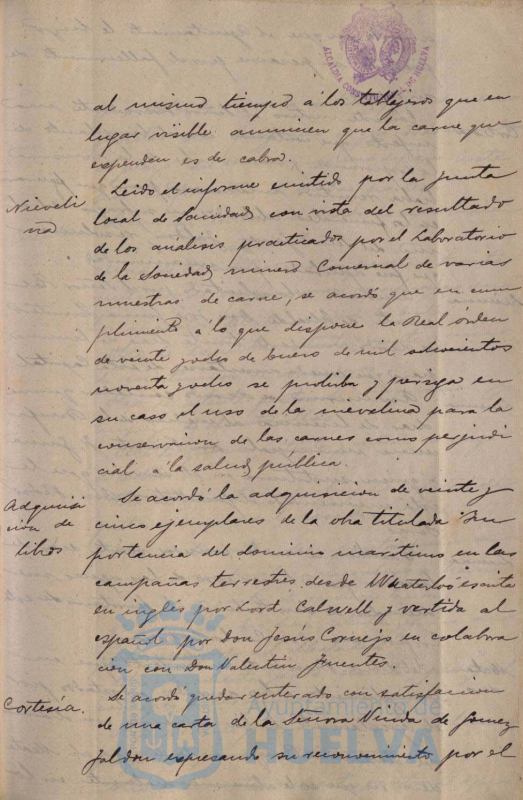 ALCALDIA CONSTITUCIONAL DE HUELVA
al mismo tiempo á los tablajeros que en
lugar visible anuncien que la carne que
espenden es de cabra.
Nieveli
na
Leido el informe emitido por la Junta
local de Sanidad, con vista del resultado
de los análisis practicados por el Laboratorio
de la Sociedad minero Comercial de varias
muestras de carne, se acordó que en cum
plimiento á lo que dispone la Real órden
de veinte y ocho de Enero de mil ochocientos
noventa y ocho se prohiba y persiga en
su caso el uso de la nievelina para la
conservacion de las carnes como perjudi
cial á la salud pública.
Adquisi
cion de
libros
Se acordó la adquisicion de veinte y
cinco ejemplares de la obra titulada "Im
portancia del dominio marítimo en las
campañas terrestres desde Whaterloó" escrita
en inglés por Lord Calwell y vertida al
español por Don Jesús Cornejo en colabora
ción con Don Valentin Fuentes.
Cortesía.
Se acordó quedar enterado con satisfaccion
de una carta de la Señora Viuda de Gomez
Jaldon espresando su reconocimiento por el
Ayuntamiento de
HUELVA